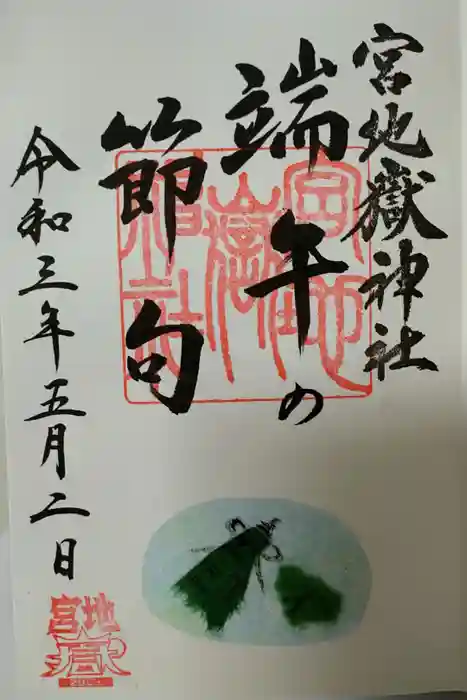 宮地嶽神社
端午の
節句
令和三年五月二日
宮地嶽神社
宮地
嶽